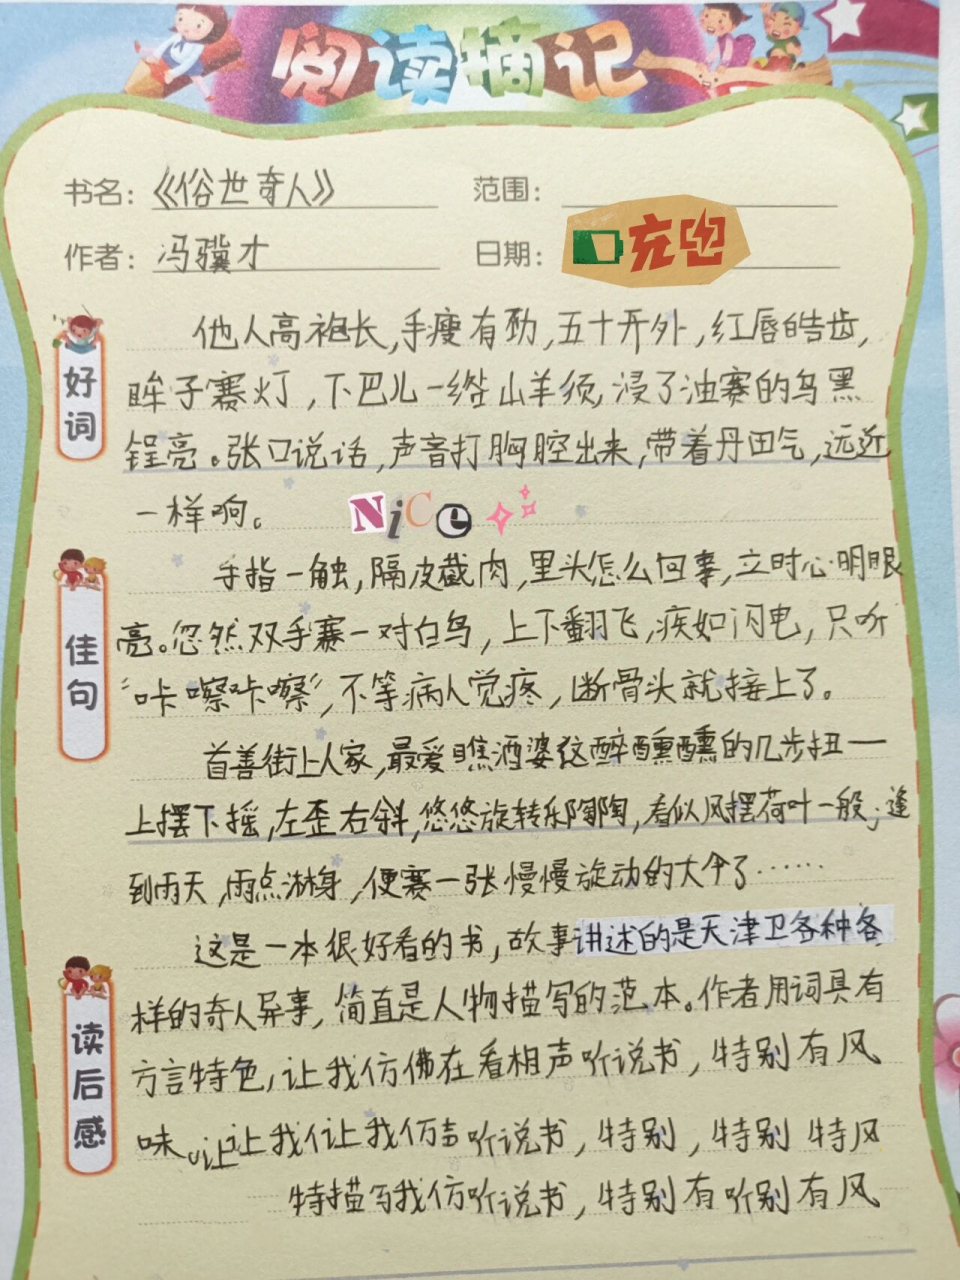 阅读摘记
书名：《俗世奇人》 范围：
作者：冯骥才 日期： 充电
好词
他人高袍长，手瘦有劲，五十开外，红唇皓齿，
眸子赛灯，下巴儿一绺山羊须，浸了油赛的乌黑
锃亮。张口说话，声音打胸腔出来，带着丹田气，远近
一样响。 NiCe
佳句
手指一触，隔皮截肉，里头怎么回事，立时心明眼
亮。忽然双手赛一对白鸟，上下翻飞，疾如闪电，只听
“咔嚓咔嚓”，不等病人觉疼，断骨头就接上了。
首善街上人家，最爱瞧酒婆这醉醺醺的几步扭——
上摆下摇，左歪右斜，悠悠旋转乐陶陶，看似风摆荷叶一般；逢
到雨天，雨点淋身，便赛一张慢慢旋动的大伞了……
读后感
这是一本很好看的书，故事讲述的是天津卫各种各
样的奇人异事，简直是人物描写的范本。作者用词具有
方言特色，让我仿佛在看相声听说书，特别有风
味。让让我仁让我仿声听说书，特别，特别特风
特描写我仿听说书，特别有听别有风